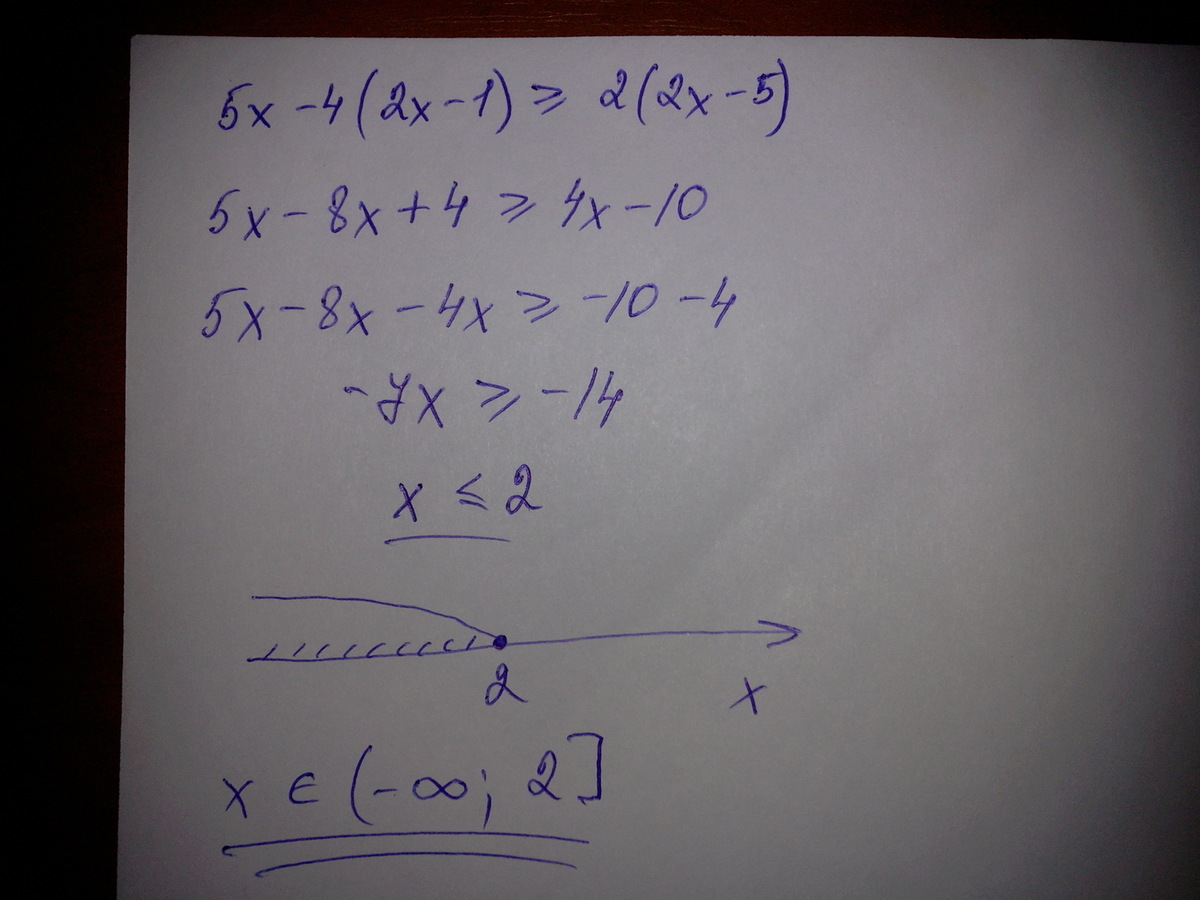 5x - 4(2x - 1) ⩾ 2(2x - 5)
5x - 8x + 4 ⩾ 4x - 10
5x - 8x - 4x ⩾ -10 - 4
-7x ⩾ -14
x ⩽ 2
2
x
x ∈ (-∞; 2]